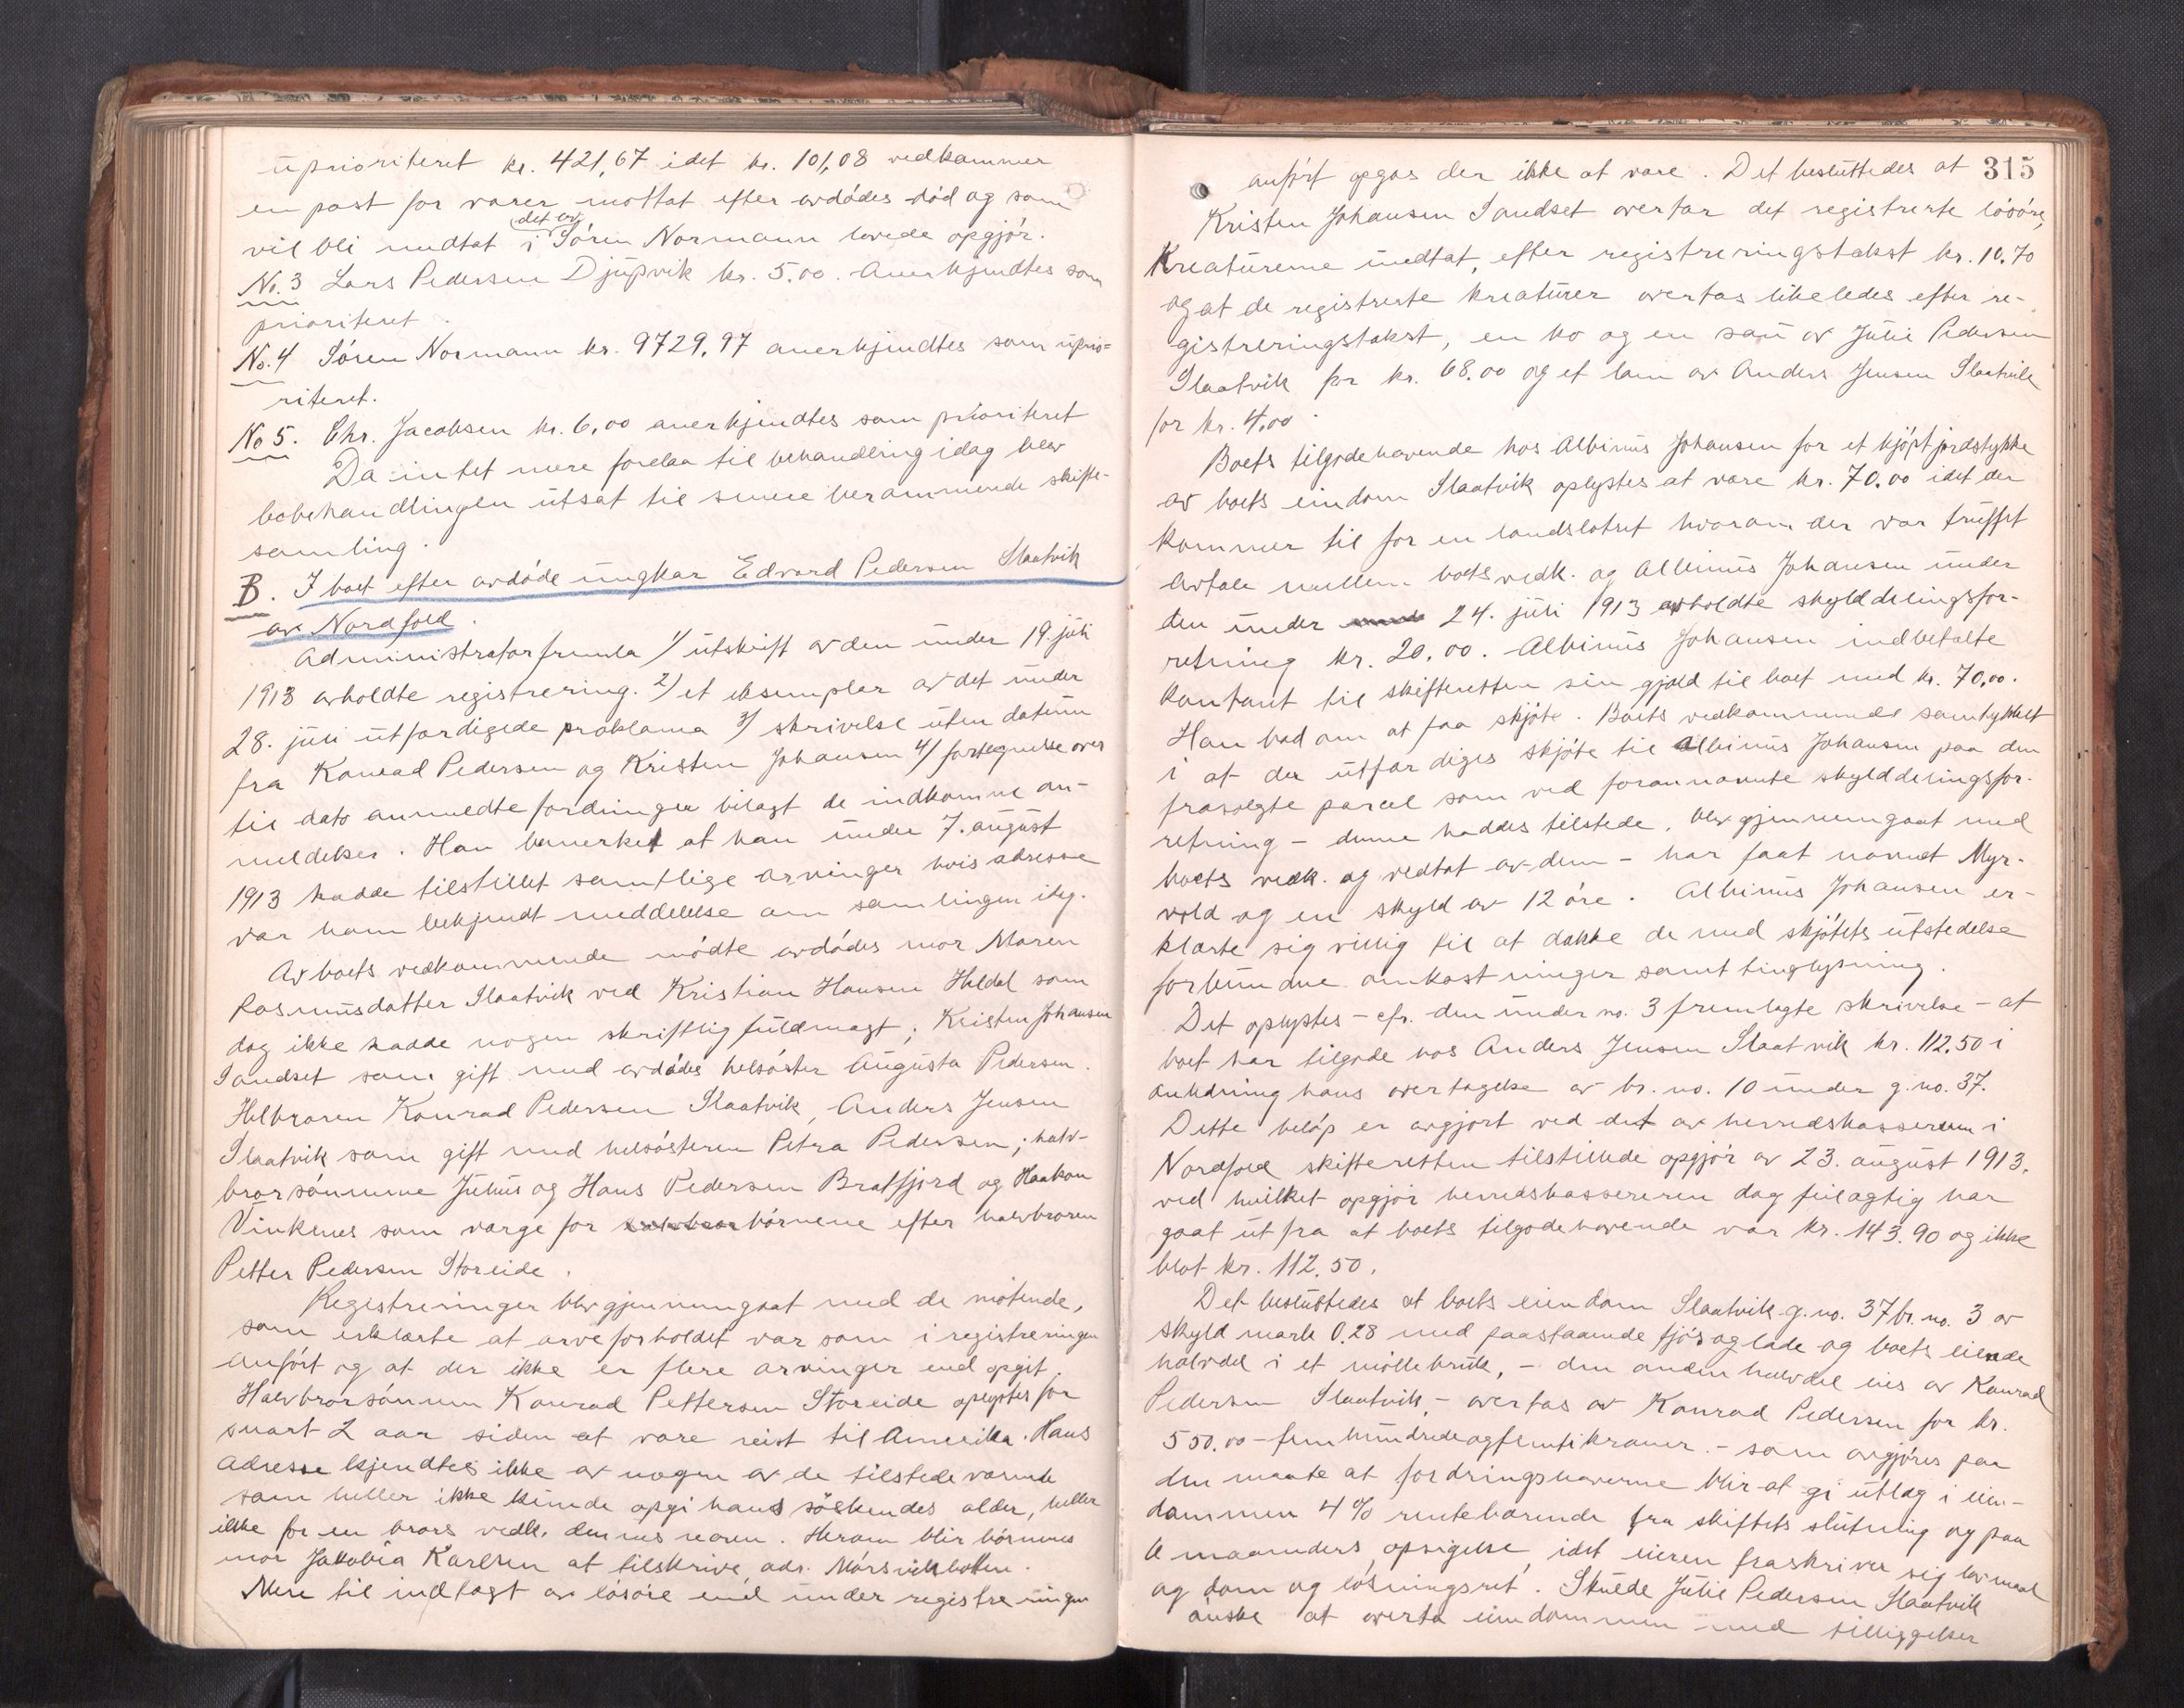 uprioriteret kr. 421,67 idet kr. 101,08 vedkommer
en post for varer mottat efter avdødes død og som
vil bli medtat i det av Søren Normann lovede opgjør.
No. 3 Lars Pedersen Djupvik kr. 5.00. Anerkjendtes som
prioriteret.
No. 4 Søren Normann kr. 9729,97 anerkjendtes som uprio-
riteret.
No 5. Chr. Jacobsen kr. 6,00 anerkjendtes som prioriteret
Da intet mere forelaa til behandling idag blev
bobehandlingen utsat til senere berammende skifte-
samling.
B. I boet efter avdøde ungkar Edvard Pedersen Slaatvik
av Nordfold.
Administrator fremla 1/ utskrift av den under 19. juli
1913 avholdte registrering. 2/ et eksemplar av det under
28. juli utfærdigede proklama 3/ skrivelse uten datum
fra Konrad Pedersen og Kristen Johansen 4/ fortegnelse over
til dato anmeldte fordringer bilagt de indkomne an-
meldelser. Han bemerket at han under 7. august
1913 hadde tilstillet samtlige arvinger hvis adresse
var ham bekjendt meddelelse om samlingen idag.
Av boets vedkommende mødte avdødes mor Maren
Rasmusdatter Slaatvik ved Kristian Hansen Heldal som
dog ikke hadde nogen skriftlig fuldmagt; Kristen Johansen
Sandset som gift med avdødes helsøster Augusta Pedersen.
Helbroren Konrad Pedersen Slaatvik, Anders Jensen
Slaatvik som gift med helsøsteren Petra Pedersen; halv-
brorsønnene Julius og Hans Pedersen Bratfjord og Haakon
Vinknes som værge for børnene efter halvbroren
Petter Pedersen Storeide.
Registreringen blev gjennemgaat med de møtende,
som erklærte at arveforholdet var som i registreringen
anført og at der ikke er flere arvinger end opgit.
Halvbrorsønnen Konrad Pettersen Storeide oplystes for
snart 2 aar siden at være reist til Amerika. Hans
adresse kjendtes ikke av nogen av de tilstedeværende
som heller ikke kunde opgi hans søskendes alder, heller
ikke for en brors vedk. dennes navn. Herom blir børnenes
mor Jakobia Karlsen at tilskrive, adr. Mørsvikbotten.
Mere til indtægt av løsøre end under registreringen
315
anført opgas der ikke at være. Det besluttedes at
Kristen Johansen Sandset overtar det registrerte løsøre,
Kreaturerne undtat, efter registreringstakst kr. 10.70
og at de registrerte kreaturer overtas likeledes efter re-
gistreringstakst, en ko og en sau av Julie Pedersen
Slaatvik for kr. 68.00 og et lam av Anders Jensen Slaatvik
for kr. 4,00.
Boets tilgodehavende hos Albinus Johansen for et kjøpt jordstykke
av boets eiendom Slaatvik oplystes at være kr. 70.00 idet der
kommer til for en landslotret hvorom der var truffet
Avtale mellem boets vedk. og Albinus Johansen under
den under 24. juli 1913 avholdte skylddelingsfor-
retning kr. 20.00. Albinus Johansen indbetalte
kontant til skifteretten sin gjæld til boet med kr. 70,00.
Han bad om at faa skjøte. Boets vedkommende samtykket
i at der utfærdiges skjøte til Albinus Johansen paa den
frasolgte parcel som ved forannævnte skylddelingsfor-
retning - denne haddes tilstede, blev gjennemgaat med
boets vedk. og vedtat av dem - har faat navnet Myr-
vold og en skyld av 12 øre. Albinus Johansen er-
klærte sig villig til at dække de med skjøtets utstedelse
forbundne omkostninger samt tinglysning.
Det oplystes - cfr. den under no. 3 fremlagte skrivelse - at
boet har tilgode hos Anders Jensen Slaatvik kr. 112.50 i
anledning hans overtagelse av br. no. 10 under g. no. 37.
Dette beløp er avgjort ved det av herredskassereren i
Nordfold skifteretten tilstillede opgjør av 23. august 1913,
ved hvilket opgjør herredskassereren dog feilagtig har
gaat ut fra at boets tilgodehavende var kr. 143.90 og ikke
blot kr. 112.50.
Det besluttedes at boets eiendom Slaatvik g. no. 37 br. no. 3 av
skyld mark 0.28 med paastaaende fjøs og lade og boets eiende
halvdel i et møllebruk, - den anden halvdel eies av Konrad
Pedersen Slaatvik, - overtas av Konrad Pedersen for kr.
550.00 - femhundredeogfemtikroner. - som avgjøres paa
den maate at fordringshaverne blir at gi utlæg i eien-
dommen 4 % rentebærende fra skiftets slutning og paa
6 maaneders opsigelse, idet eieren fraskriver sig lovmaal
og dom og løsningsret. Skulde Julie Pedersen Slaatvik
ønske at overta eiendommen med tilliggelser